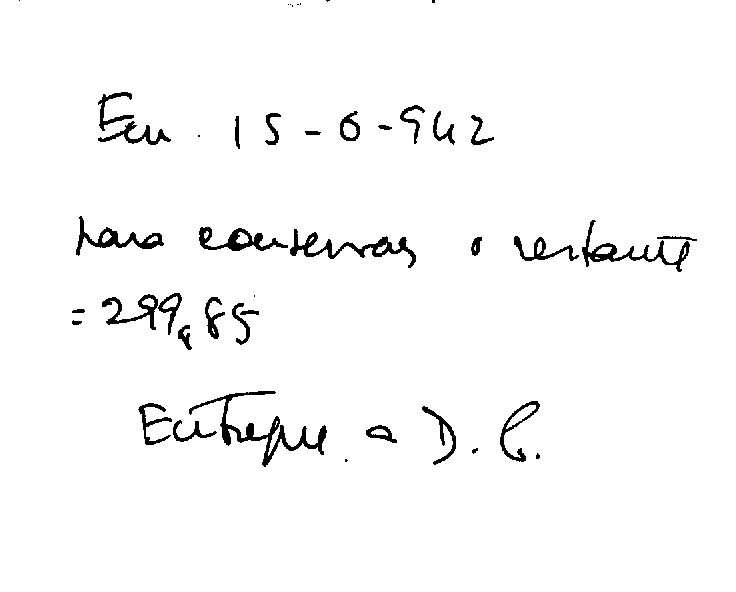 Em 15-6-942
para conservas o restante
= 299,85
Entregue a D. C.